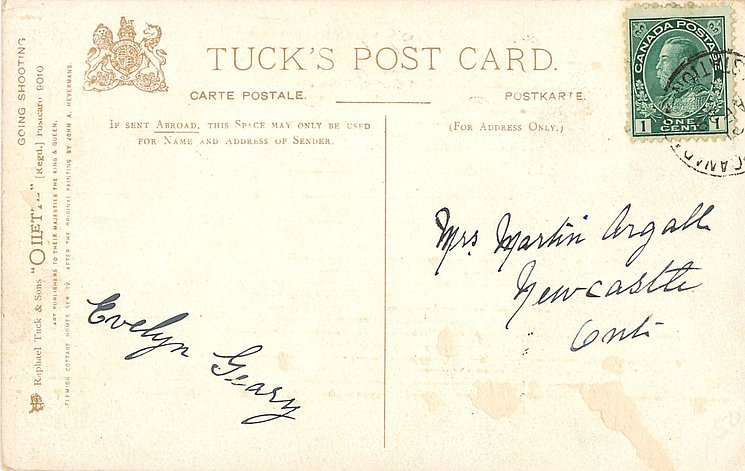 TUCK'S POST CARD.
CARTE POSTALE.
POSTKARTE.
IF SENT ABROAD, THIS SPACE MAY ONLY BE USED
FOR NAME AND ADDRESS OF SENDER.
(FOR ADDRESS ONLY.)
CANADA POSTAGE
1 ONE CENT 1
CANADA
Mrs. Martin Argall
Newcastle
Ont.
Evelyn
Geary
GOING SHOOTING
Raphael Tuck & Sons "OILETTE" [Regd.] Postcard 9010
ART PUBLISHERS TO THEIR MAJESTIES THE KING & QUEEN.
FLEMISH COTTAGE HOMES SER. IV. AFTER THE ORIGINAL PAINTING BY JOHN A. HEYERMANS.